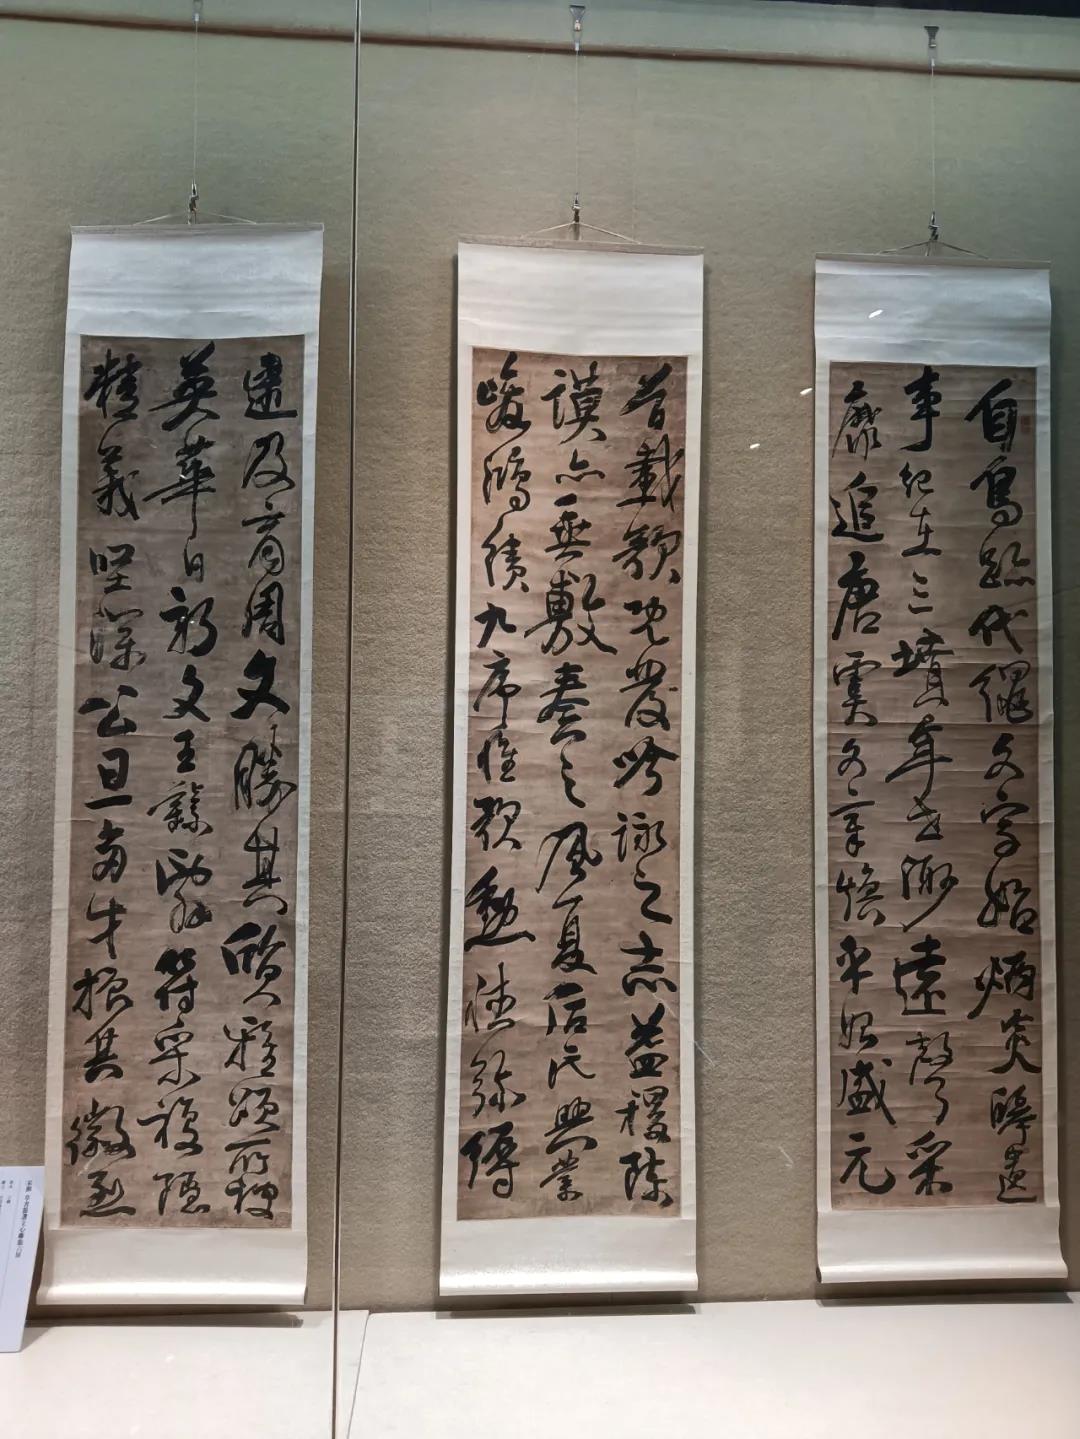 自鳥跡代繩文字始炳炎皞遺
事紀在三墳年世渺遠聲采
靡追唐虞文章煥乎始盛元
首載歌既發吟詠之志益稷陳
謨亦垂敷奏之風夏后氏興業
峻鴻績九序惟歌勳德彌縟
逮及商周文勝其質雅頌所被
英華日新文王繇辭符采複隱
精義堅深公旦多才振其徽烈